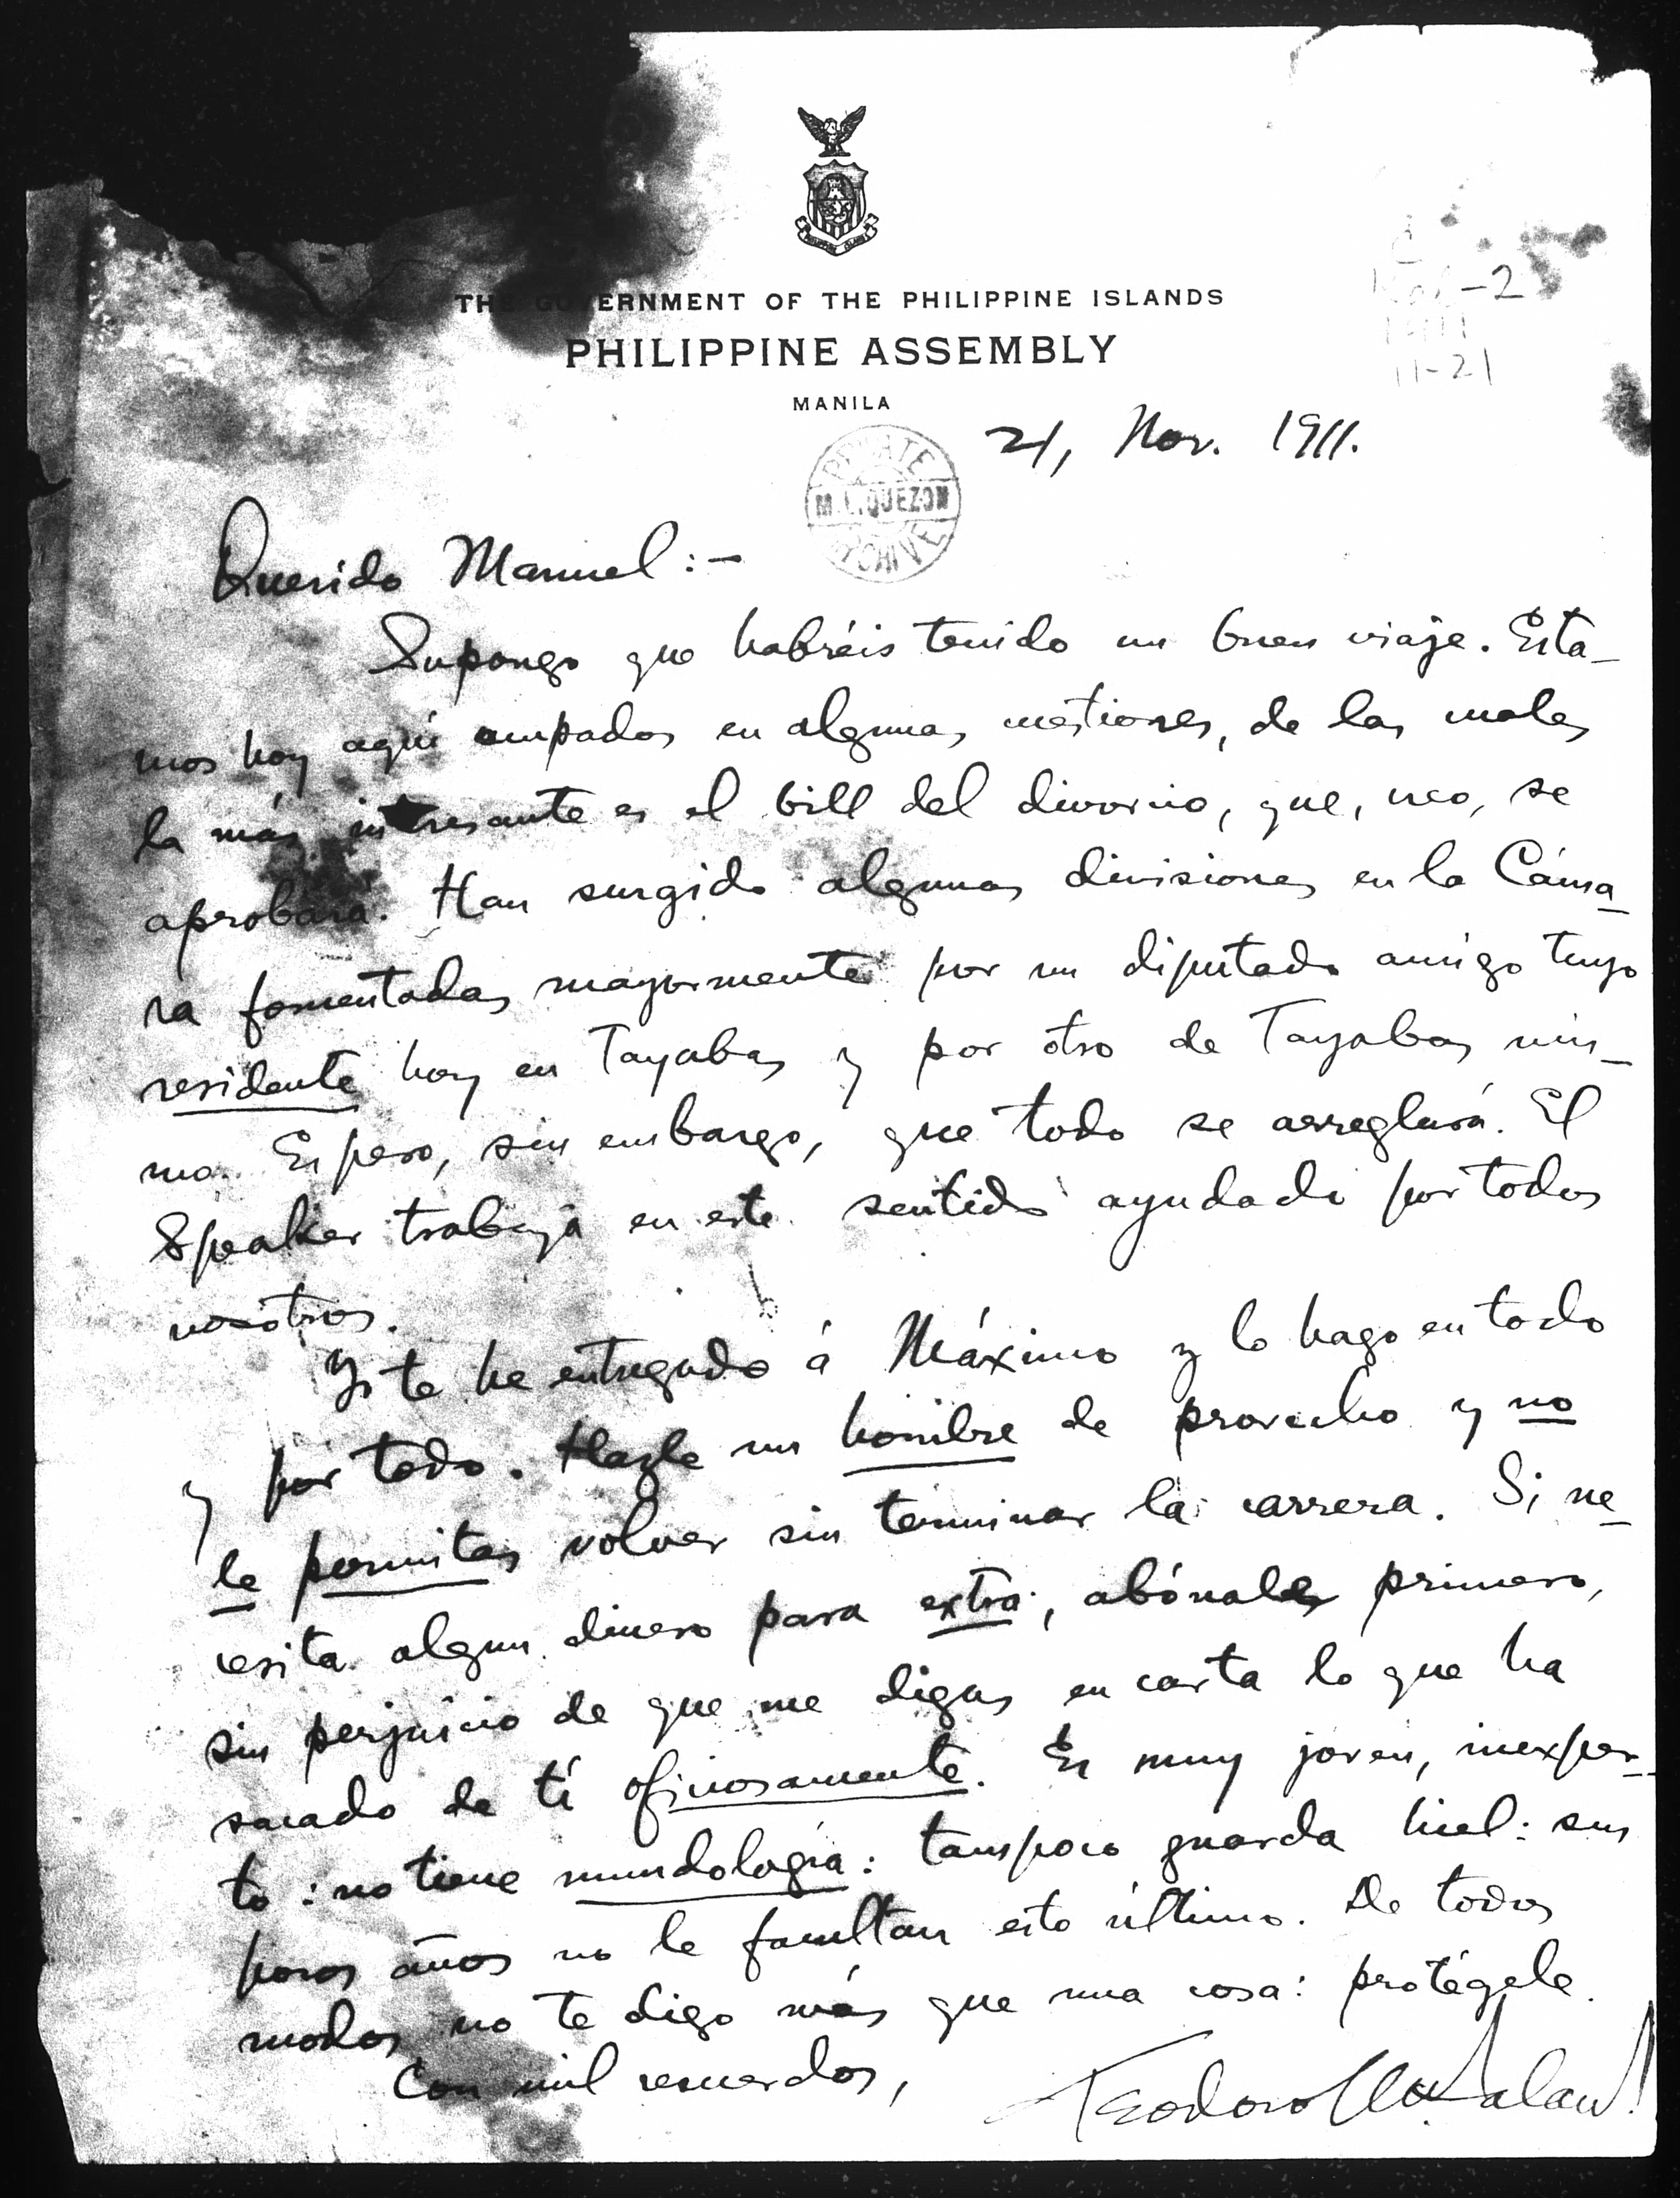 PHILIPPINE ISLANDS
THE GOVERNMENT OF THE PHILIPPINE ISLANDS
PHILIPPINE ASSEMBLY
MANILA
-2
11-21
21, Nov. 1911.
PRIVATE
M. L. QUEZON
ARCHIVE
Querido Manuel:-
Supongo que habréis tenido un buen viaje. Esta-
mos hoy aquí ocupados en algunas cuestiones, de las cuales
la más interesante es el bill del divorcio, que, creo, se
aprobará. Han surgido algunas divisiones en la Cáma-
ra fomentadas mayormente por un diputado amigo tuyo
residente hoy en Tayabas y por otro de Tayabas mis-
mo. Espero, sin embargo, que todo se arreglará. El
Speaker trabaja en este sentido ayudado por todos
nosotros.
Yo te he entregado á Máximo y lo hago en todo
y por todo. Hazle un hombre de provecho y no
le permitas volver sin terminar la carrera. Si ne-
cesita algun dinero para extra, abónale primero,
sin perjuicio de que me digas en carta lo que ha
sacado de tí oficiosamente. Es muy joven, inexper-
to: no tiene mundología: tampoco guarda hiel: sus
pocos años no le facultan esto último. De todos
modos no te digo más que una cosa: protégele.
Con mil recuerdos,
Teodoro M. Kalaw